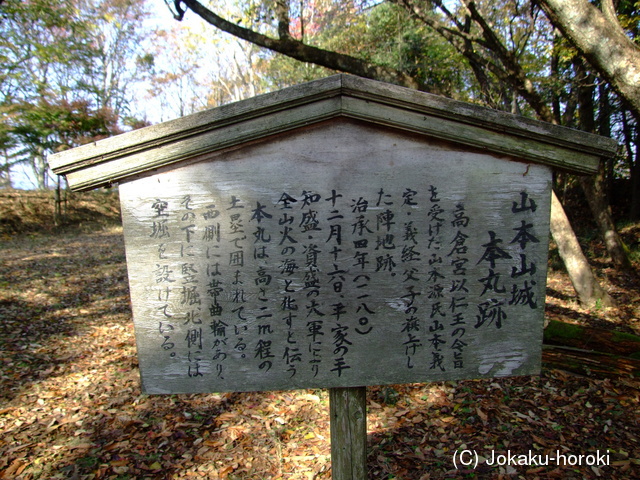 山本山城
本丸跡
高倉宮以仁王の令旨
を受けた山本源氏山本義
定・義経父子の旗上げし
た陣地跡。
治承四年(一一八〇)
十二月十六日、平家の平
知盛・資盛の大軍により
全山火の海と化すと伝う
本丸は高さ二m程の
土塁で囲まれている。
西側には帯曲輪があり、
その下に竪堀北側には
空堀を設けている。
(C) Jokaku-horoki